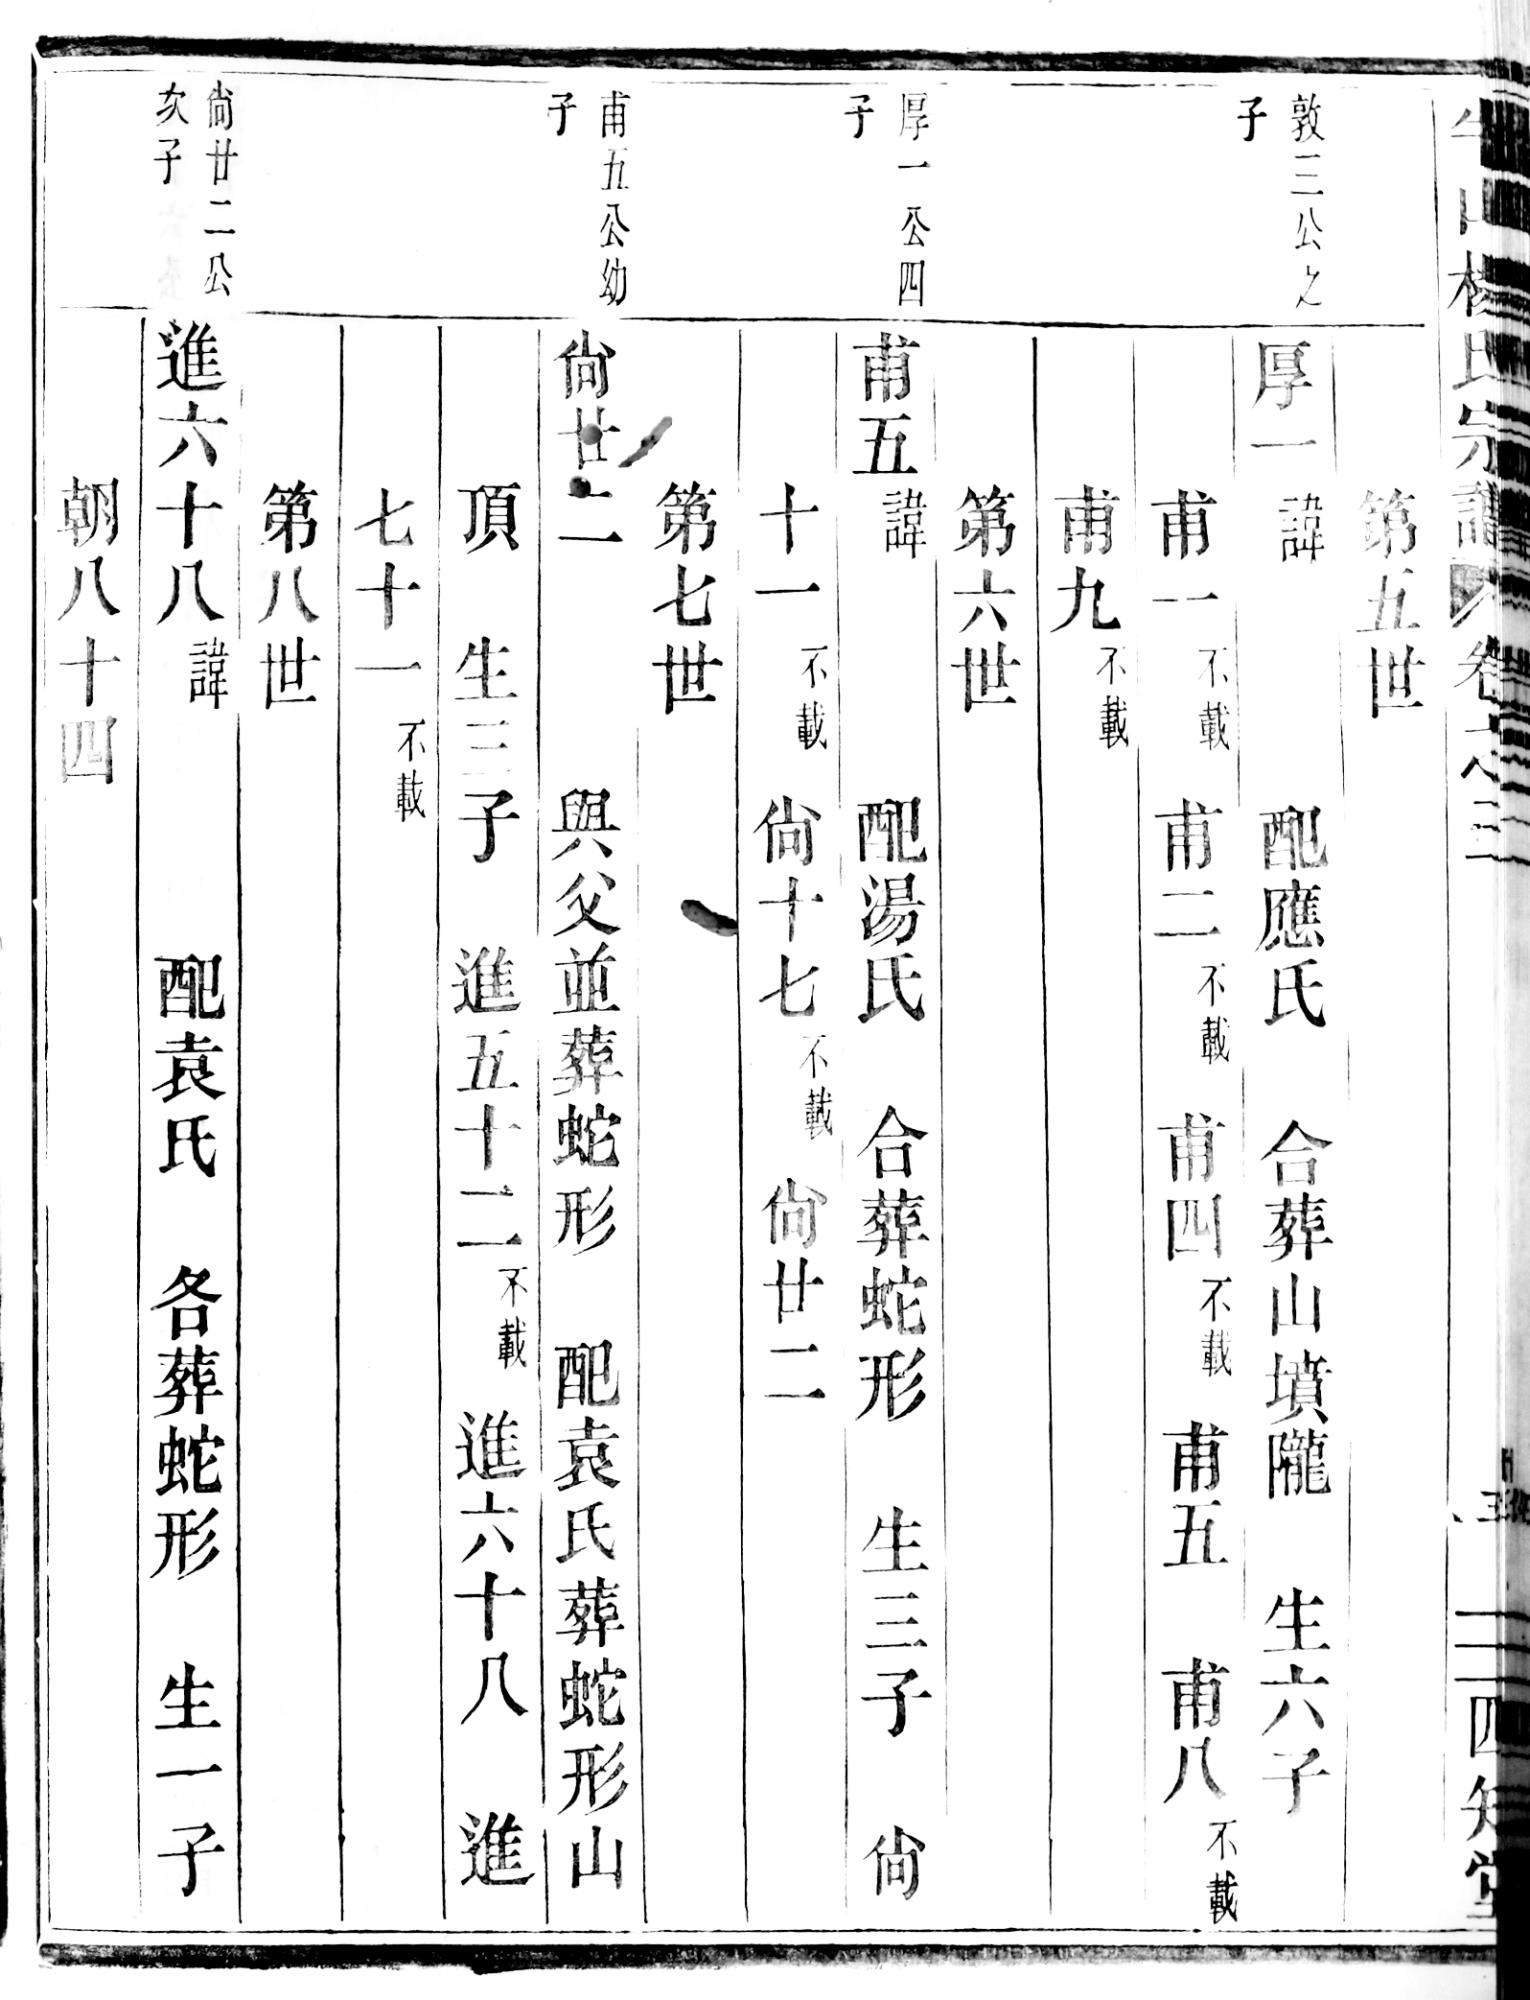 山楊氏宗譜 卷之三 四知堂
第五世
敦三公之
子
厚一 諱 配應氏 合葬山墳隴 生六子
甫一 不載 甫二 不載 甫四 不載 甫五 甫八 不載
甫九 不載
第六世
厚一公四
子
甫五 諱 配湯氏 合葬蛇形 生三子 尙
十一 不載 尙十七 不載 尙廿二
第七世
甫五公幼
子
尙廿二 與父並葬蛇形 配袁氏葬蛇形山
頂 生三子 進五十二 不載 進六十八 進
七十一 不載
第八世
尙廿二公
次子
進六十八 諱 配袁氏 各葬蛇形 生一子
朝八十四